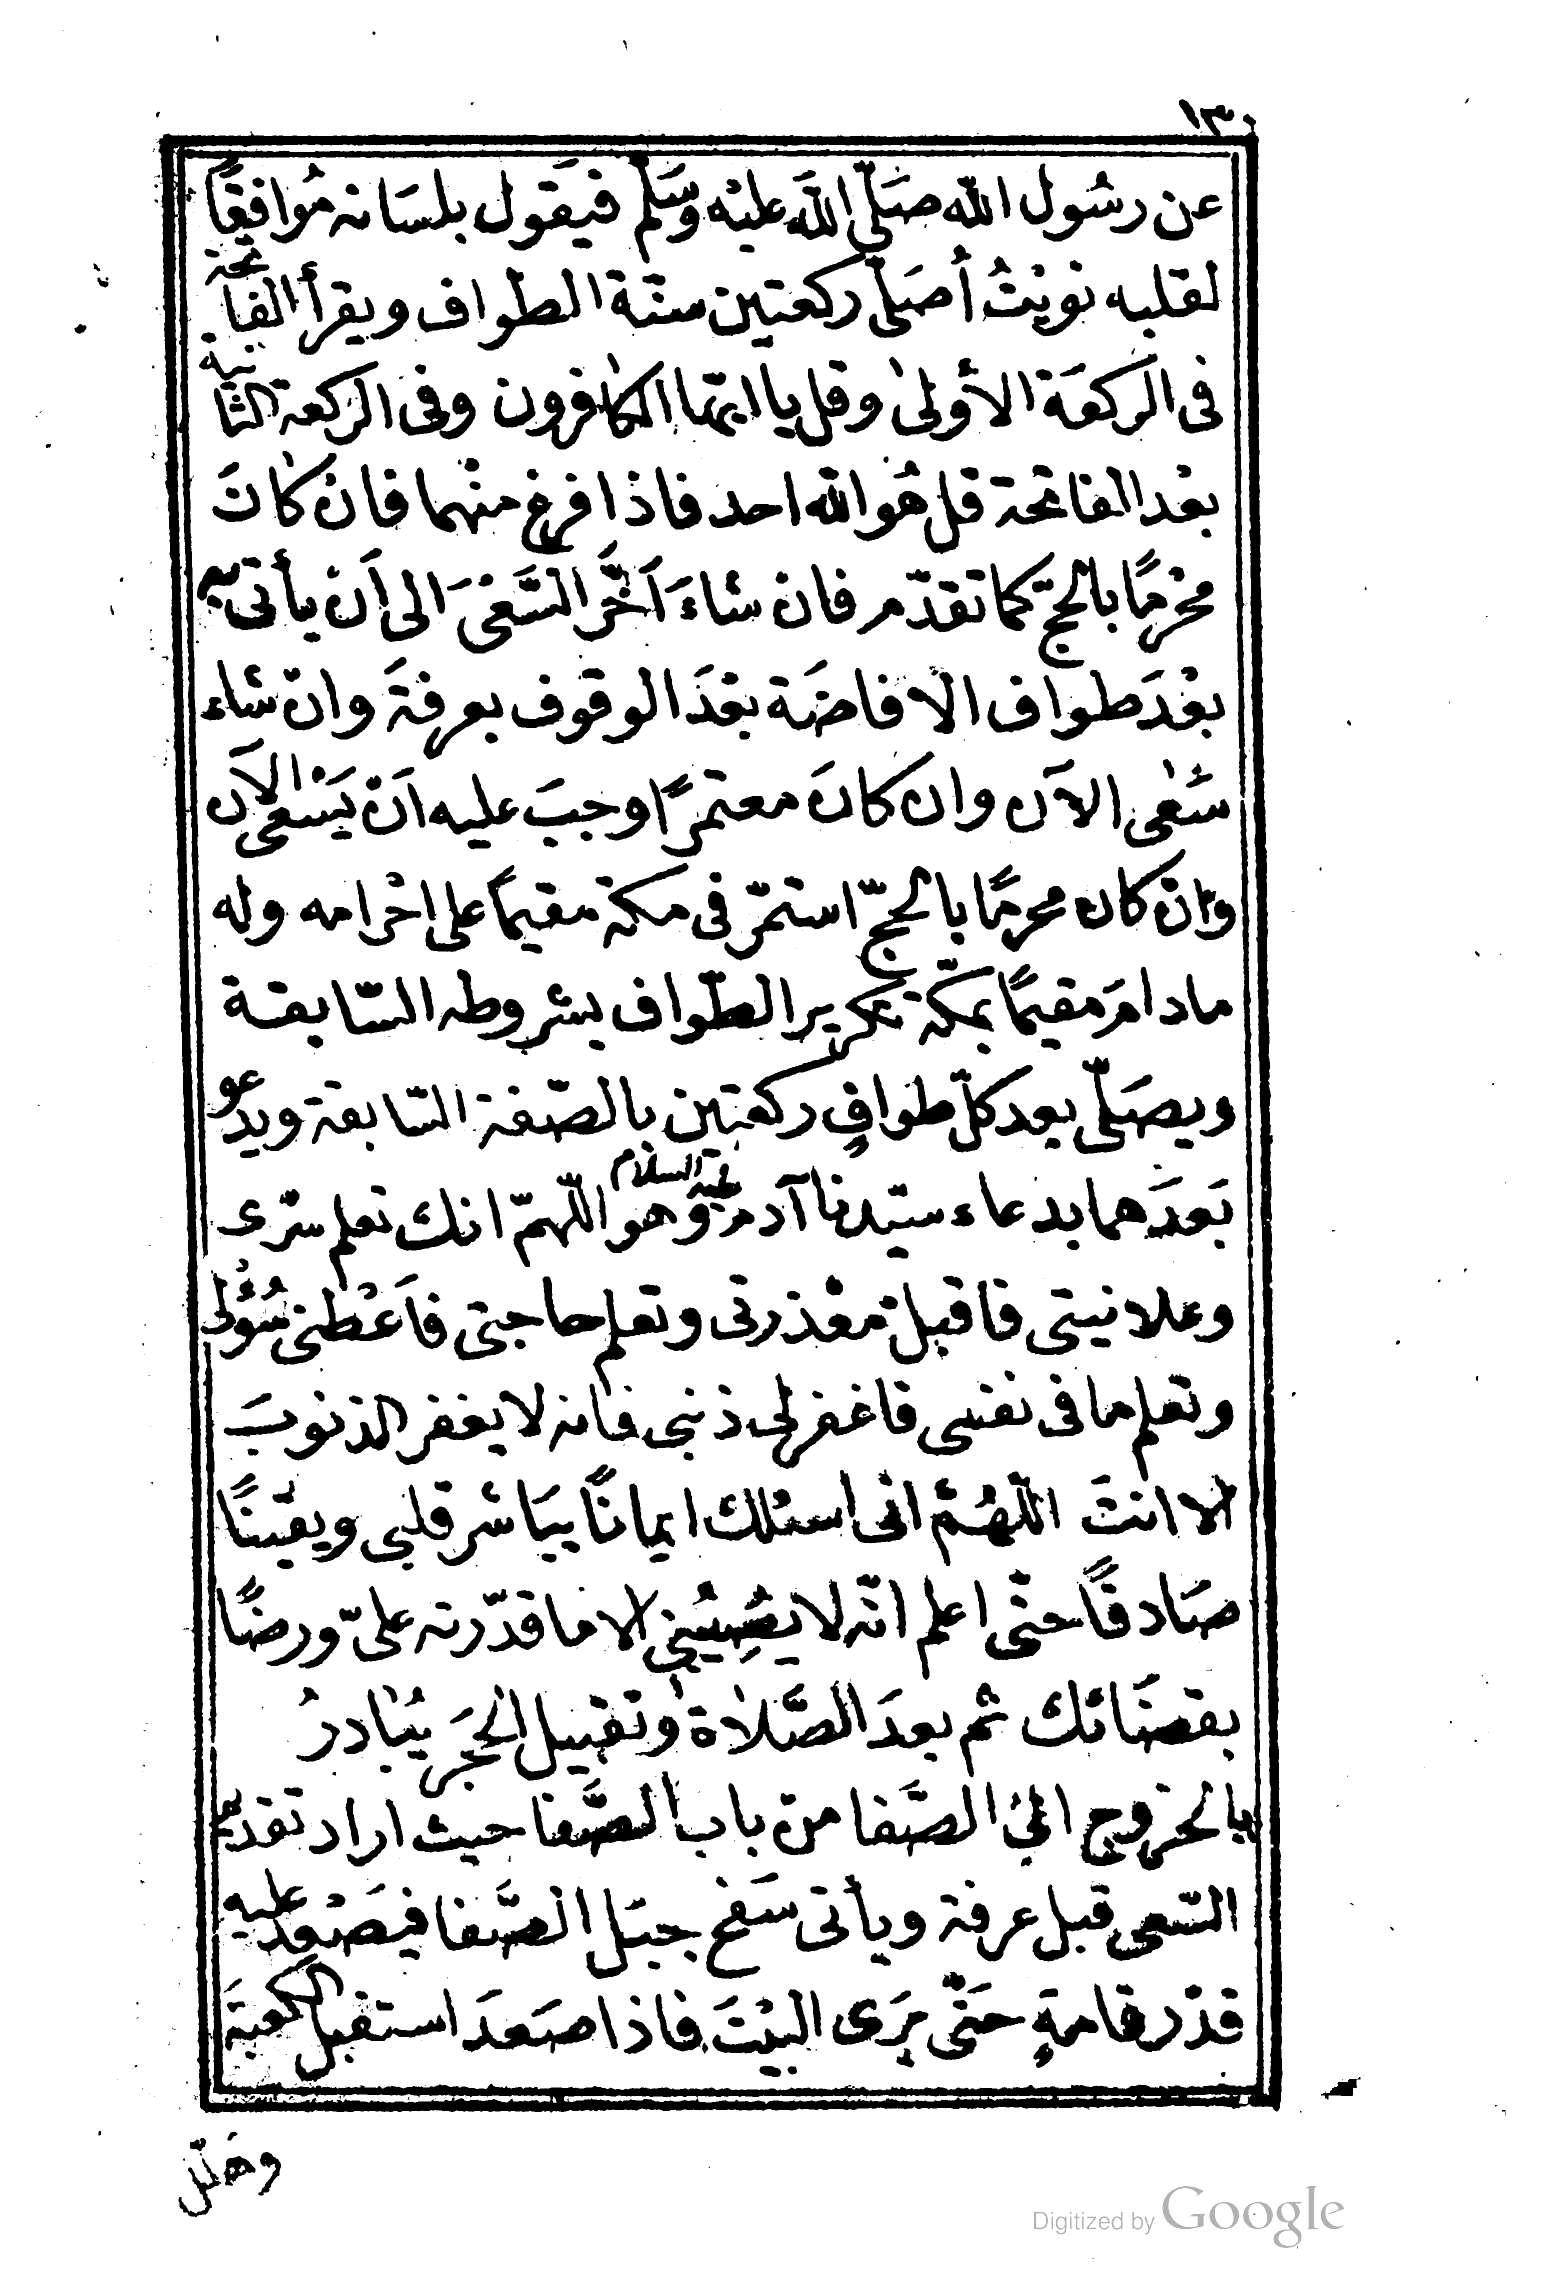 ١٣٠
عن رسُول الله صَلّى اللَّه عليْه وَسَلّم فيَقول بلسَانه مُوافِقًا
لقلبه نويْتُ أُصَلّى ركعتين سنّة الطواف ويقرأ الفاتحة
فى الركعَة الأولىٰ وقل يا ايّها الكافرون وفى الركعة الثانية
بعْد الفاتحة قل هُو الله احد فاذا فرغ منْهما فانْ كانَ
محْرمًا بالحجّ كما تقدّم فان شاءَ اَخَّر السَّعْىَ الى اَنْ يأتى به
بعْدَ طواف الافاضَة بعْدَ الوقوف بعرفةَ وانْ شاء
سَعٰى الآن وان كانَ معتمرًا وجبَ عليه اَنْ يَسْعى الآن
وانْ كان محرمًا بالحجّ استمرّ فى مكة مقيمًا على احْرامه وله
مادامَ مقيمًا بمكّة تكرير الطّواف بشروطه السّابقة
ويصَلّى بعد كلّ طوافٍ ركعتين بالصّفة السّابقة ويدعو
بَعدَهما بدعاء سيّدنا آدم عليه السلام وهو اللّهمّ انك تعلم سرّى
وعلانيتى فاقبل معْذرتى وتعلم حاجتى فاَعْطنى سُؤْلى
وتعلم ما فى نفسى فاغفر لى ذنبى فانه لا يغفر الذنوبَ
الا انتَ اللّهُمّ انى اسئلك ايمانًا يبَاشر قلبى ويقينًا
صَادقًا حتّى اعلم انّه لا يصِيْبُنى الا ما قدّرته علىّ ورضًا
بقضَائك ثم بعدَ الصَّلاة وتقبيل الحَجَر يُبَادرُ
بالخروج الىٰ الصَّفا منْ باب الصَّفا حيث اراد تقديم
السّعى قبل عرفة ويأتى سَفح جبَل الصَّفا فيَصْعد عليه
قدْر قامةٍ حَتّى يَرَى البيْتَ فاذا صَعدَ استقبل الكعبةَ
وهَلّل
Digitized by Google